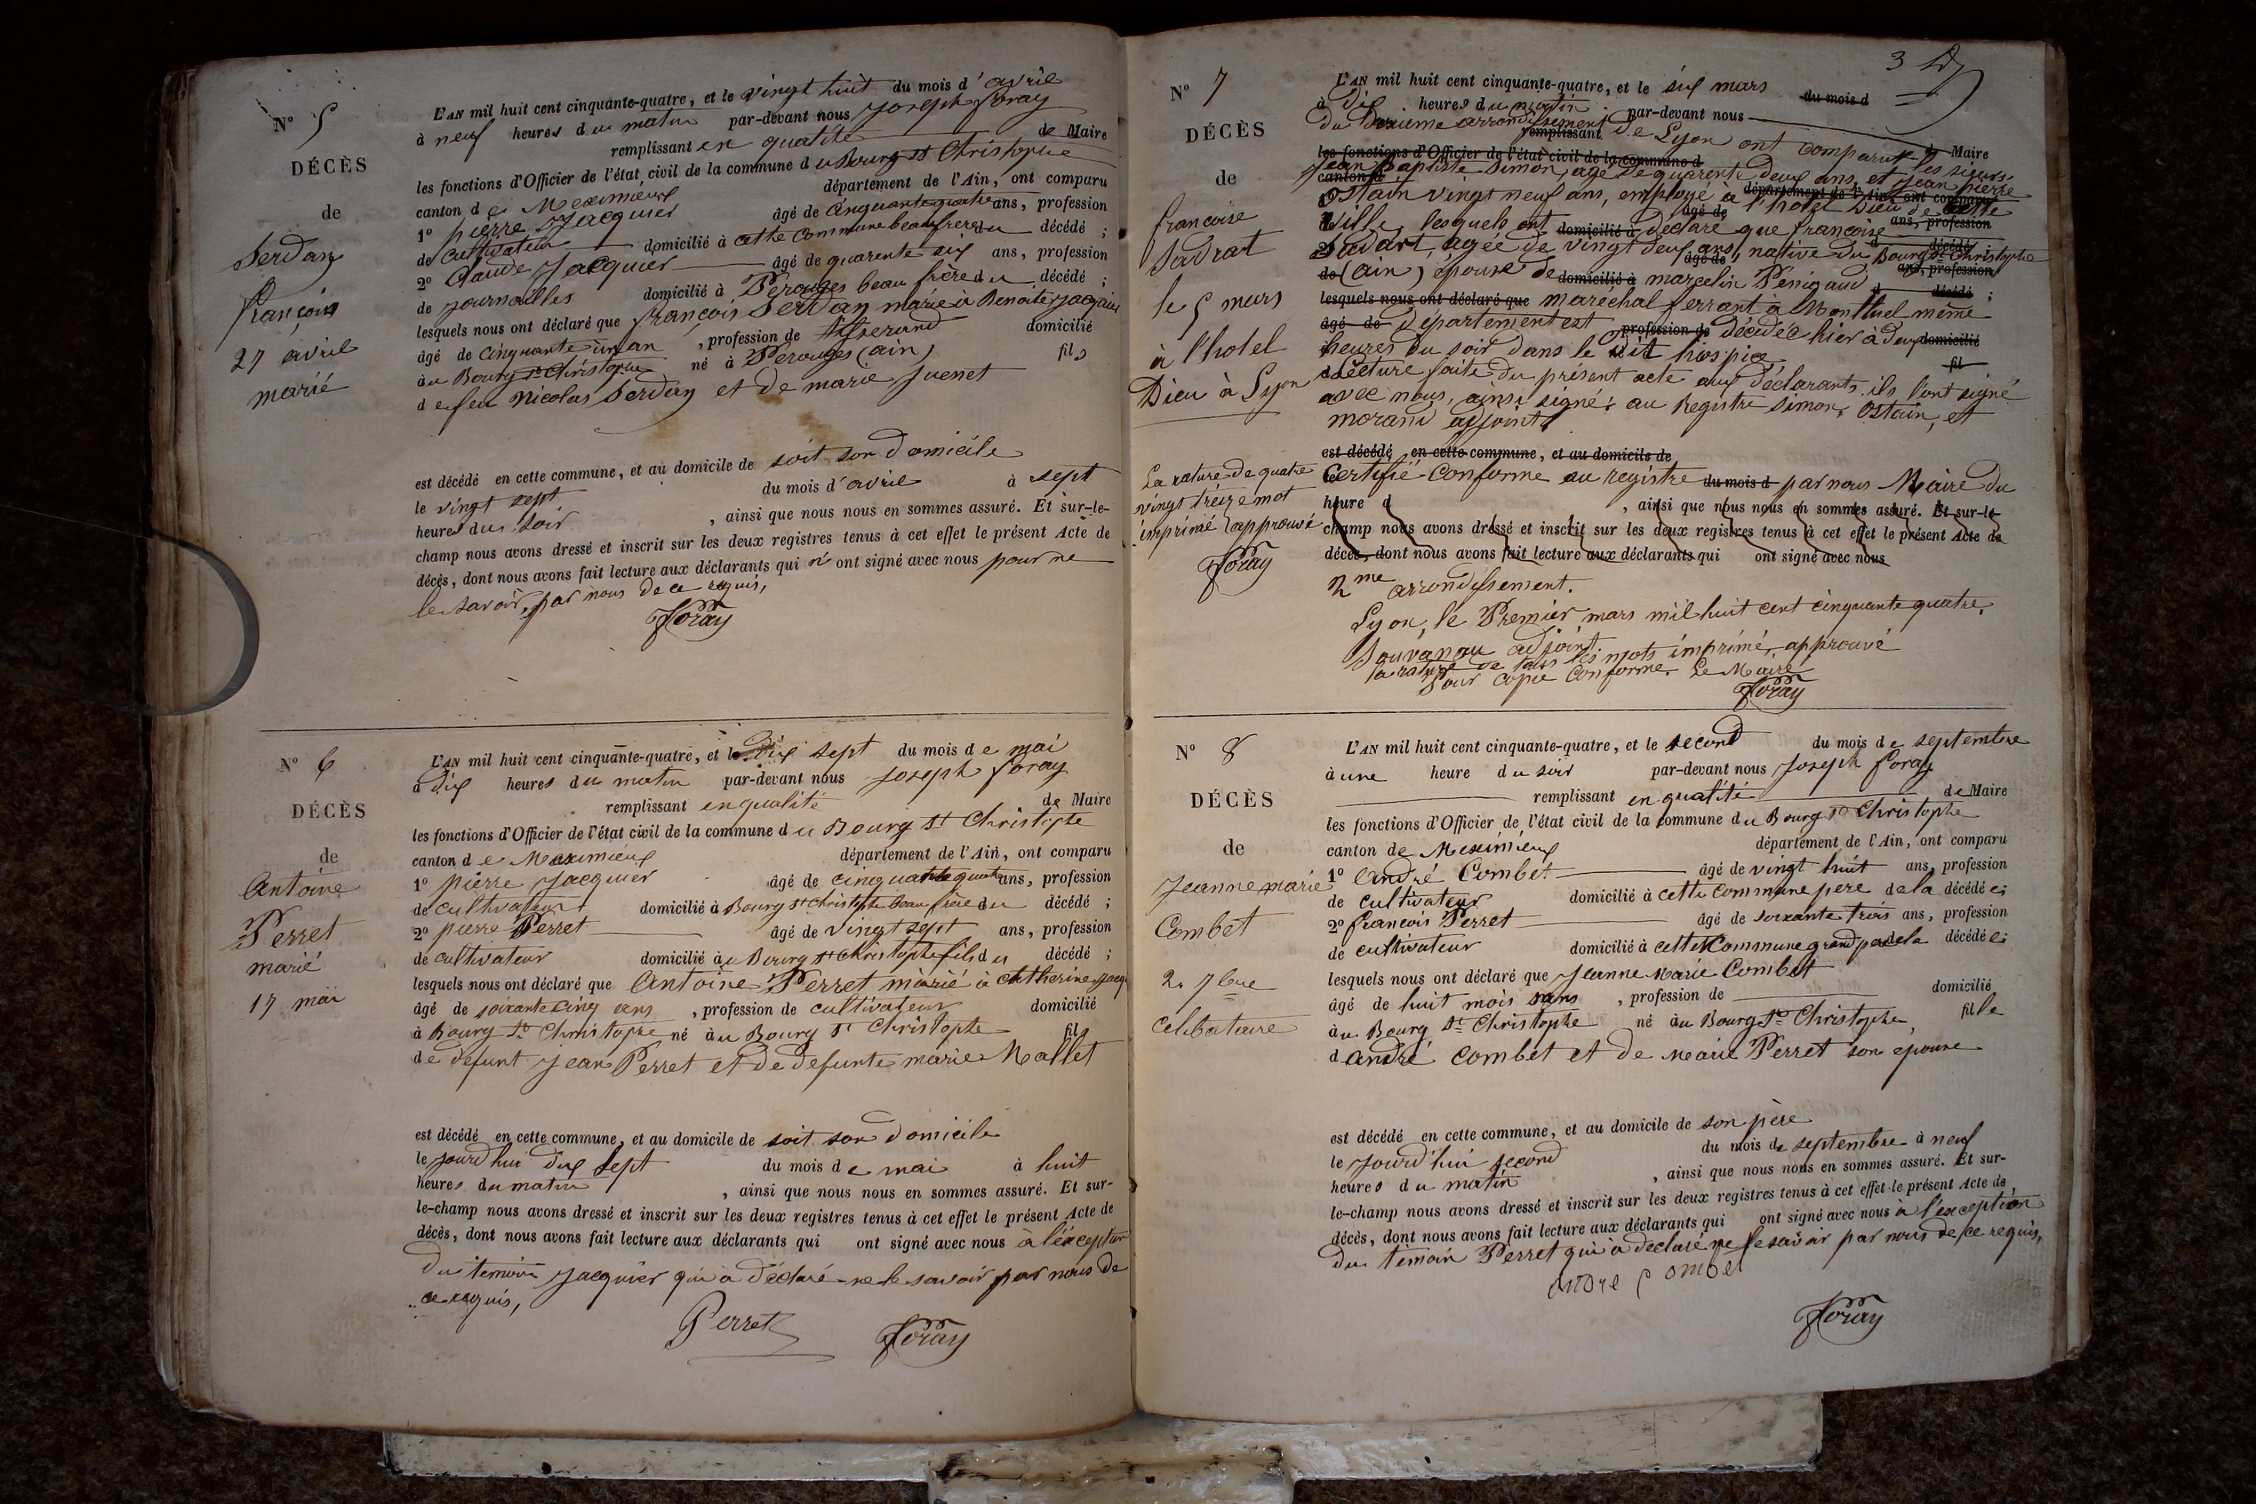 N° 5
DÉCÈS
de
Serdan
françois
27 avril
marié
L'AN mil huit cent cinquante-quatre, et le vingt huit du mois d'avril
à neuf heures du matin par-devant nous Joseph Foray
remplissant en qualité de Maire
les fonctions d'Officier de l'état civil de la commune du Bourg St Christophe
canton de Meximieux département de l'Ain, ont comparu
1° pierre Jacquier âgé de cinquante quatre ans, profession
de cultivateur domicilié à cette commune beaufrere du décédé ;
2° Claude Jacquier âgé de quarente six ans, profession
de journallier domicilié à Perouges beau frère du décédé ;
lesquels nous ont déclaré que françois Serdan marié à Benoite Jacquier
âgé de cinquante un an, profession de tisserand domicilié
au Bourg St Christophe né à Perouges (ain) fils
de feu Nicolas Serdan et de marie Juenet
est décédé en cette commune, et au domicile de soit son domicile
le vingt sept du mois d'avril à sept
heures du soir, ainsi que nous nous en sommes assuré. Et sur-le-
champ nous avons dressé et inscrit sur les deux registres tenus à cet effet le présent Acte de
décès, dont nous avons fait lecture aux déclarants qui n'ont signé avec nous pour ne
le savoir, par nous de ce requis,
Foray
N° 6
DÉCÈS
de
Antoine
Perret
marié
17 mai
L'AN mil huit cent cinquante-quatre, et le dix sept du mois de mai
à dix heures du matin par-devant nous Joseph foray
remplissant en qualité de Maire
les fonctions d'Officier de l'état civil de la commune du Bourg St Christophe
canton de Meximieux département de l'Ain, ont comparu
1° pierre Jacquier âgé de cinquante quatre ans, profession
de cultivateur domicilié à Bourg St Christophe beau frère du décédé ;
2° pierre Perret âgé de vingt sept ans, profession
de cultivateur domicilié au Bourg St Christophe fils du décédé ;
lesquels nous ont déclaré que Antoine Perret marié à Catherine Jacq
âgé de soixante cinq ans, profession de cultivateur domicilié
à Bourg St Christophe né au Bourg St Christophe fils
de defunt Jean Perret et de defunte marie Mallet
est décédé en cette commune, et au domicile de soit son domicile
le jourd'hui dix sept du mois de mai à huit
heures du matin, ainsi que nous nous en sommes assuré. Et sur-
le-champ nous avons dressé et inscrit sur les deux registres tenus à cet effet le présent Acte de
décès, dont nous avons fait lecture aux déclarants qui ont signé avec nous à l'exception
du temoin Jacquier qui a déclaré ne le savoir par nous de
ce requis,
Perret Foray
3
N° 7
DÉCÈS
de
francoise
Sadrat
le 5 mars
à l'hotel
Dieu à Lyon
La rature de quatre
vingt treize mot
imprimé approuvé
Foray
L'AN mil huit cent cinquante-quatre, et le six mars du mois d
à dix heures du matin par-devant nous Maire
du deuxieme arrondissement de Lyon ont comparut les sieurs
remplissant
les fonctions d'Officier de l'état civil de la commune d
Jean Baptiste Simon, agé de quarente deux ans, et Jean pierre
canton d département de l'Ain, ont comparu
Ostain vingt neuf ans, employé à l'hotel Dieu de cette
âgé de ans, profession
ville, lesquels ont déclaré que francoise
domicilié à décédé
Sadart, agée de vingt deux ans, native du Bourg St Christophe
âgé de ans, profession
(ain) épouse de marcelin Pénigaud
de domicilié à décédé ;
lesquels nous ont déclaré que marechal ferrant à Montluel même
âgé de Département est profession de décédée hier à deux domicilié
heures du soir dans le dit hospice
fil
Lecture faite du présent acte aux déclarants ils l'ont signé
avec nous, ainsi signé : au Registre Simon, Ostain, et
morand adjoint
est décédé en cette commune, et au domicile de
Certifié conforme au registre du mois d par nous Maire du
heure d, ainsi que nous nous en sommes assuré. Et sur-le-
champ nous avons dressé et inscrit sur les deux registres tenus à cet effet le présent Acte de
décès, dont nous avons fait lecture aux déclarants qui ont signé avec nous
2me arrondissement.
Lyon, le Premier mars mil huit cent cinquante quatre,
adjoint
la rature de tous les mots imprimé, approuvé
Pour copie conforme. Le Maire
Foray
N° 8
DÉCÈS
de
Jeanne marie
Combet
2. 7bre
Celibataire
L'AN mil huit cent cinquante-quatre, et le second du mois de septembre
à une heure du soir par-devant nous Joseph foray
remplissant en qualité de Maire
les fonctions d'Officier de l'état civil de la commune du Bourg St Christophe
canton de Meximieux département de l'Ain, ont comparu
1° André Combet âgé de vingt huit ans, profession
de cultivateur domicilié à cette commune pere de la décédée ;
2° francois Perret âgé de soixante trois ans, profession
de cultivateur domicilié à cette commune grand pere de la décédée ;
lesquels nous ont déclaré que Jeanne Marie Combet
âgé de huit mois ans, profession de domicilié
au Bourg St Christophe né au Bourg St Christophe, fille
d André Combet et de Marie Perret son epouse
est décédé en cette commune, et au domicile de son père
le jourd'hui second du mois de septembre à neuf
heures du matin, ainsi que nous nous en sommes assuré. Et sur-
le-champ nous avons dressé et inscrit sur les deux registres tenus à cet effet le présent Acte de
décès, dont nous avons fait lecture aux déclarants qui ont signé avec nous à l'exception
du temoin Perret qui a déclaré ne le savoir par nous de ce requis,
Andre Combet
Foray